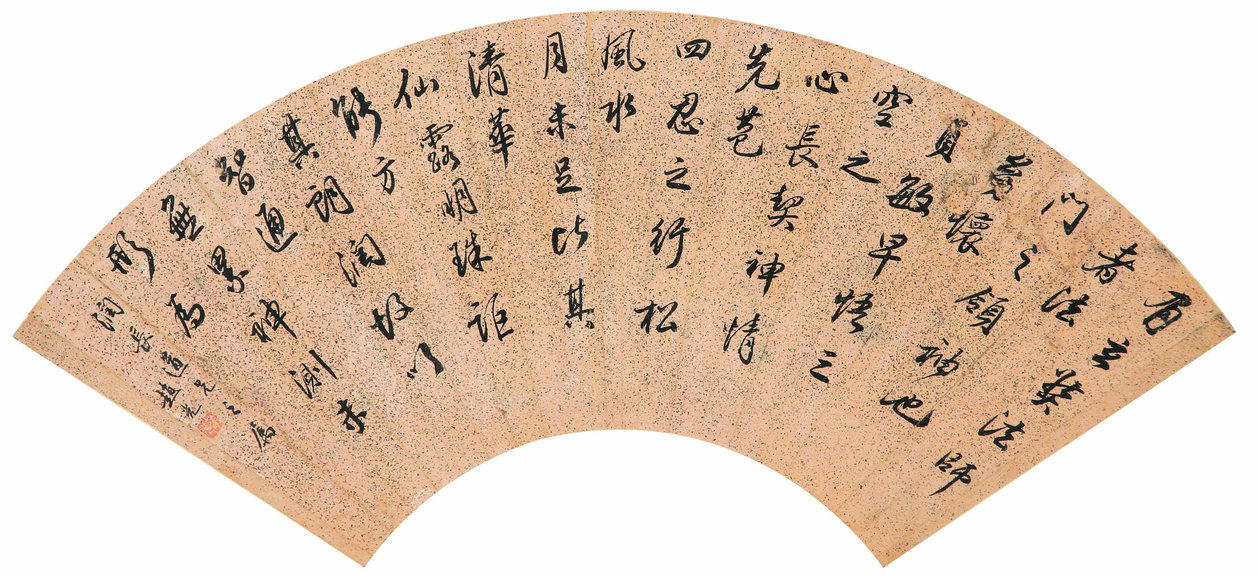 有玄奘法師
者法
門之領袖也
幼懷
貞敏早悟三
空之
心長契神情
先苞
四忍之行松
風水
月未足比其
清華
仙露明珠詎
能方
其朗潤故以
智通
無累神測未
形為
潤長道兄之屬
趙光